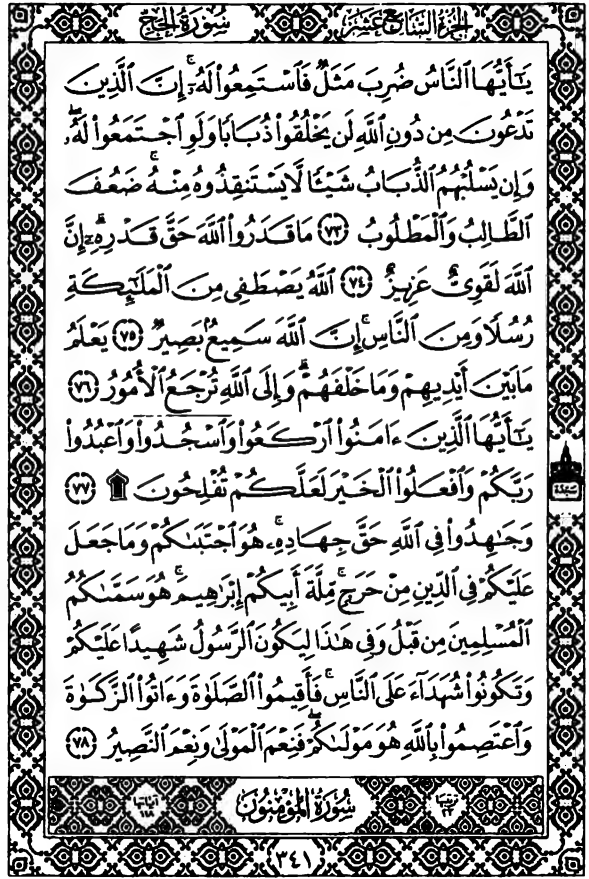 سُورَةُ الحَجّ الجُزْءُ السَّابِعَ عَشَرَ
يَٰٓأَيُّهَا ٱلنَّاسُ ضُرِبَ مَثَلٌ فَٱسْتَمِعُوا۟ لَهُۥٓ ۚ إِنَّ ٱلَّذِينَ
تَدْعُونَ مِن دُونِ ٱللَّهِ لَن يَخْلُقُوا۟ ذُبَابًا وَلَوِ ٱجْتَمَعُوا۟ لَهُۥ ۖ
وَإِن يَسْلُبْهُمُ ٱلذُّبَابُ شَيْـًٔا لَّا يَسْتَنقِذُوهُ مِنْهُ ۚ ضَعُفَ
ٱلطَّالِبُ وَٱلْمَطْلُوبُ ﴿٧٣﴾ مَا قَدَرُوا۟ ٱللَّهَ حَقَّ قَدْرِهِۦٓ ۗ إِنَّ
ٱللَّهَ لَقَوِىٌّ عَزِيزٌ ﴿٧٤﴾ ٱللَّهُ يَصْطَفِى مِنَ ٱلْمَلَٰٓئِكَةِ
رُسُلًا وَمِنَ ٱلنَّاسِ ۚ إِنَّ ٱللَّهَ سَمِيعٌۢ بَصِيرٌ ﴿٧٥﴾ يَعْلَمُ
مَا بَيْنَ أَيْدِيهِمْ وَمَا خَلْفَهُمْ ۗ وَإِلَى ٱللَّهِ تُرْجَعُ ٱلْأُمُورُ ﴿٧٦﴾
يَٰٓأَيُّهَا ٱلَّذِينَ ءَامَنُوا۟ ٱرْكَعُوا۟ وَٱسْجُدُوا۟ وَٱعْبُدُوا۟
رَبَّكُمْ وَٱفْعَلُوا۟ ٱلْخَيْرَ لَعَلَّكُمْ تُفْلِحُونَ ۩ ﴿٧٧﴾
سَجْدَة
وَجَٰهِدُوا۟ فِى ٱللَّهِ حَقَّ جِهَادِهِۦ ۚ هُوَ ٱجْتَبَىٰكُمْ وَمَا جَعَلَ
عَلَيْكُمْ فِى ٱلدِّينِ مِنْ حَرَجٍ ۚ مِّلَّةَ أَبِيكُمْ إِبْرَٰهِيمَ ۚ هُوَ سَمَّىٰكُمُ
ٱلْمُسْلِمِينَ مِن قَبْلُ وَفِى هَٰذَا لِيَكُونَ ٱلرَّسُولُ شَهِيدًا عَلَيْكُمْ
وَتَكُونُوا۟ شُهَدَآءَ عَلَى ٱلنَّاسِ ۚ فَأَقِيمُوا۟ ٱلصَّلَوٰةَ وَءَاتُوا۟ ٱلزَّكَوٰةَ
وَٱعْتَصِمُوا۟ بِٱللَّهِ هُوَ مَوْلَىٰكُمْ ۖ فَنِعْمَ ٱلْمَوْلَىٰ وَنِعْمَ ٱلنَّصِيرُ ﴿٧٨﴾
ترتيبها ٢٣ سُورَةُ المُؤْمِنُون آياتها ١١٨
٣٤١